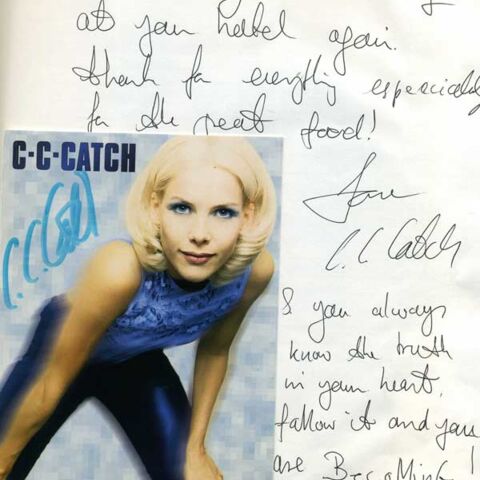 at your hotel again.
thank for everything especially
for the great food!
Love
C.C. Catch
C·C·CATCH
C.C. Catch
& you always
know the truth
in your heart,
follow it and you
are